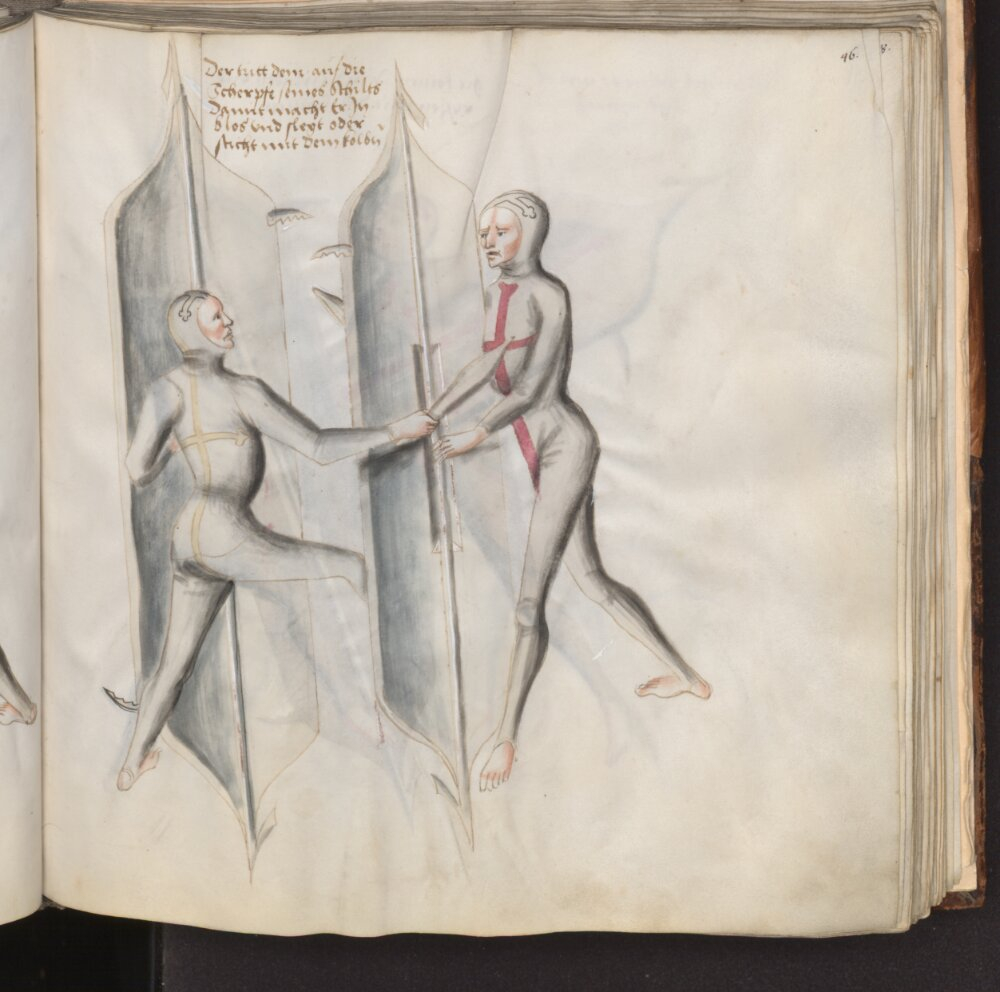 Der tritt dem auf die
Scherpfe seines Schilts
Damit macht Er Jn
blos vnd slegt oder
sticht mit dem kolbn
96. 8.